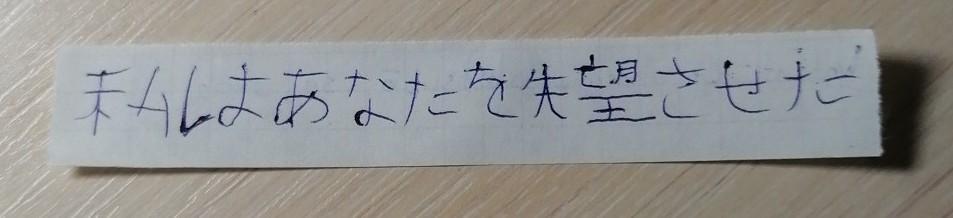 私はあなたを失望させた